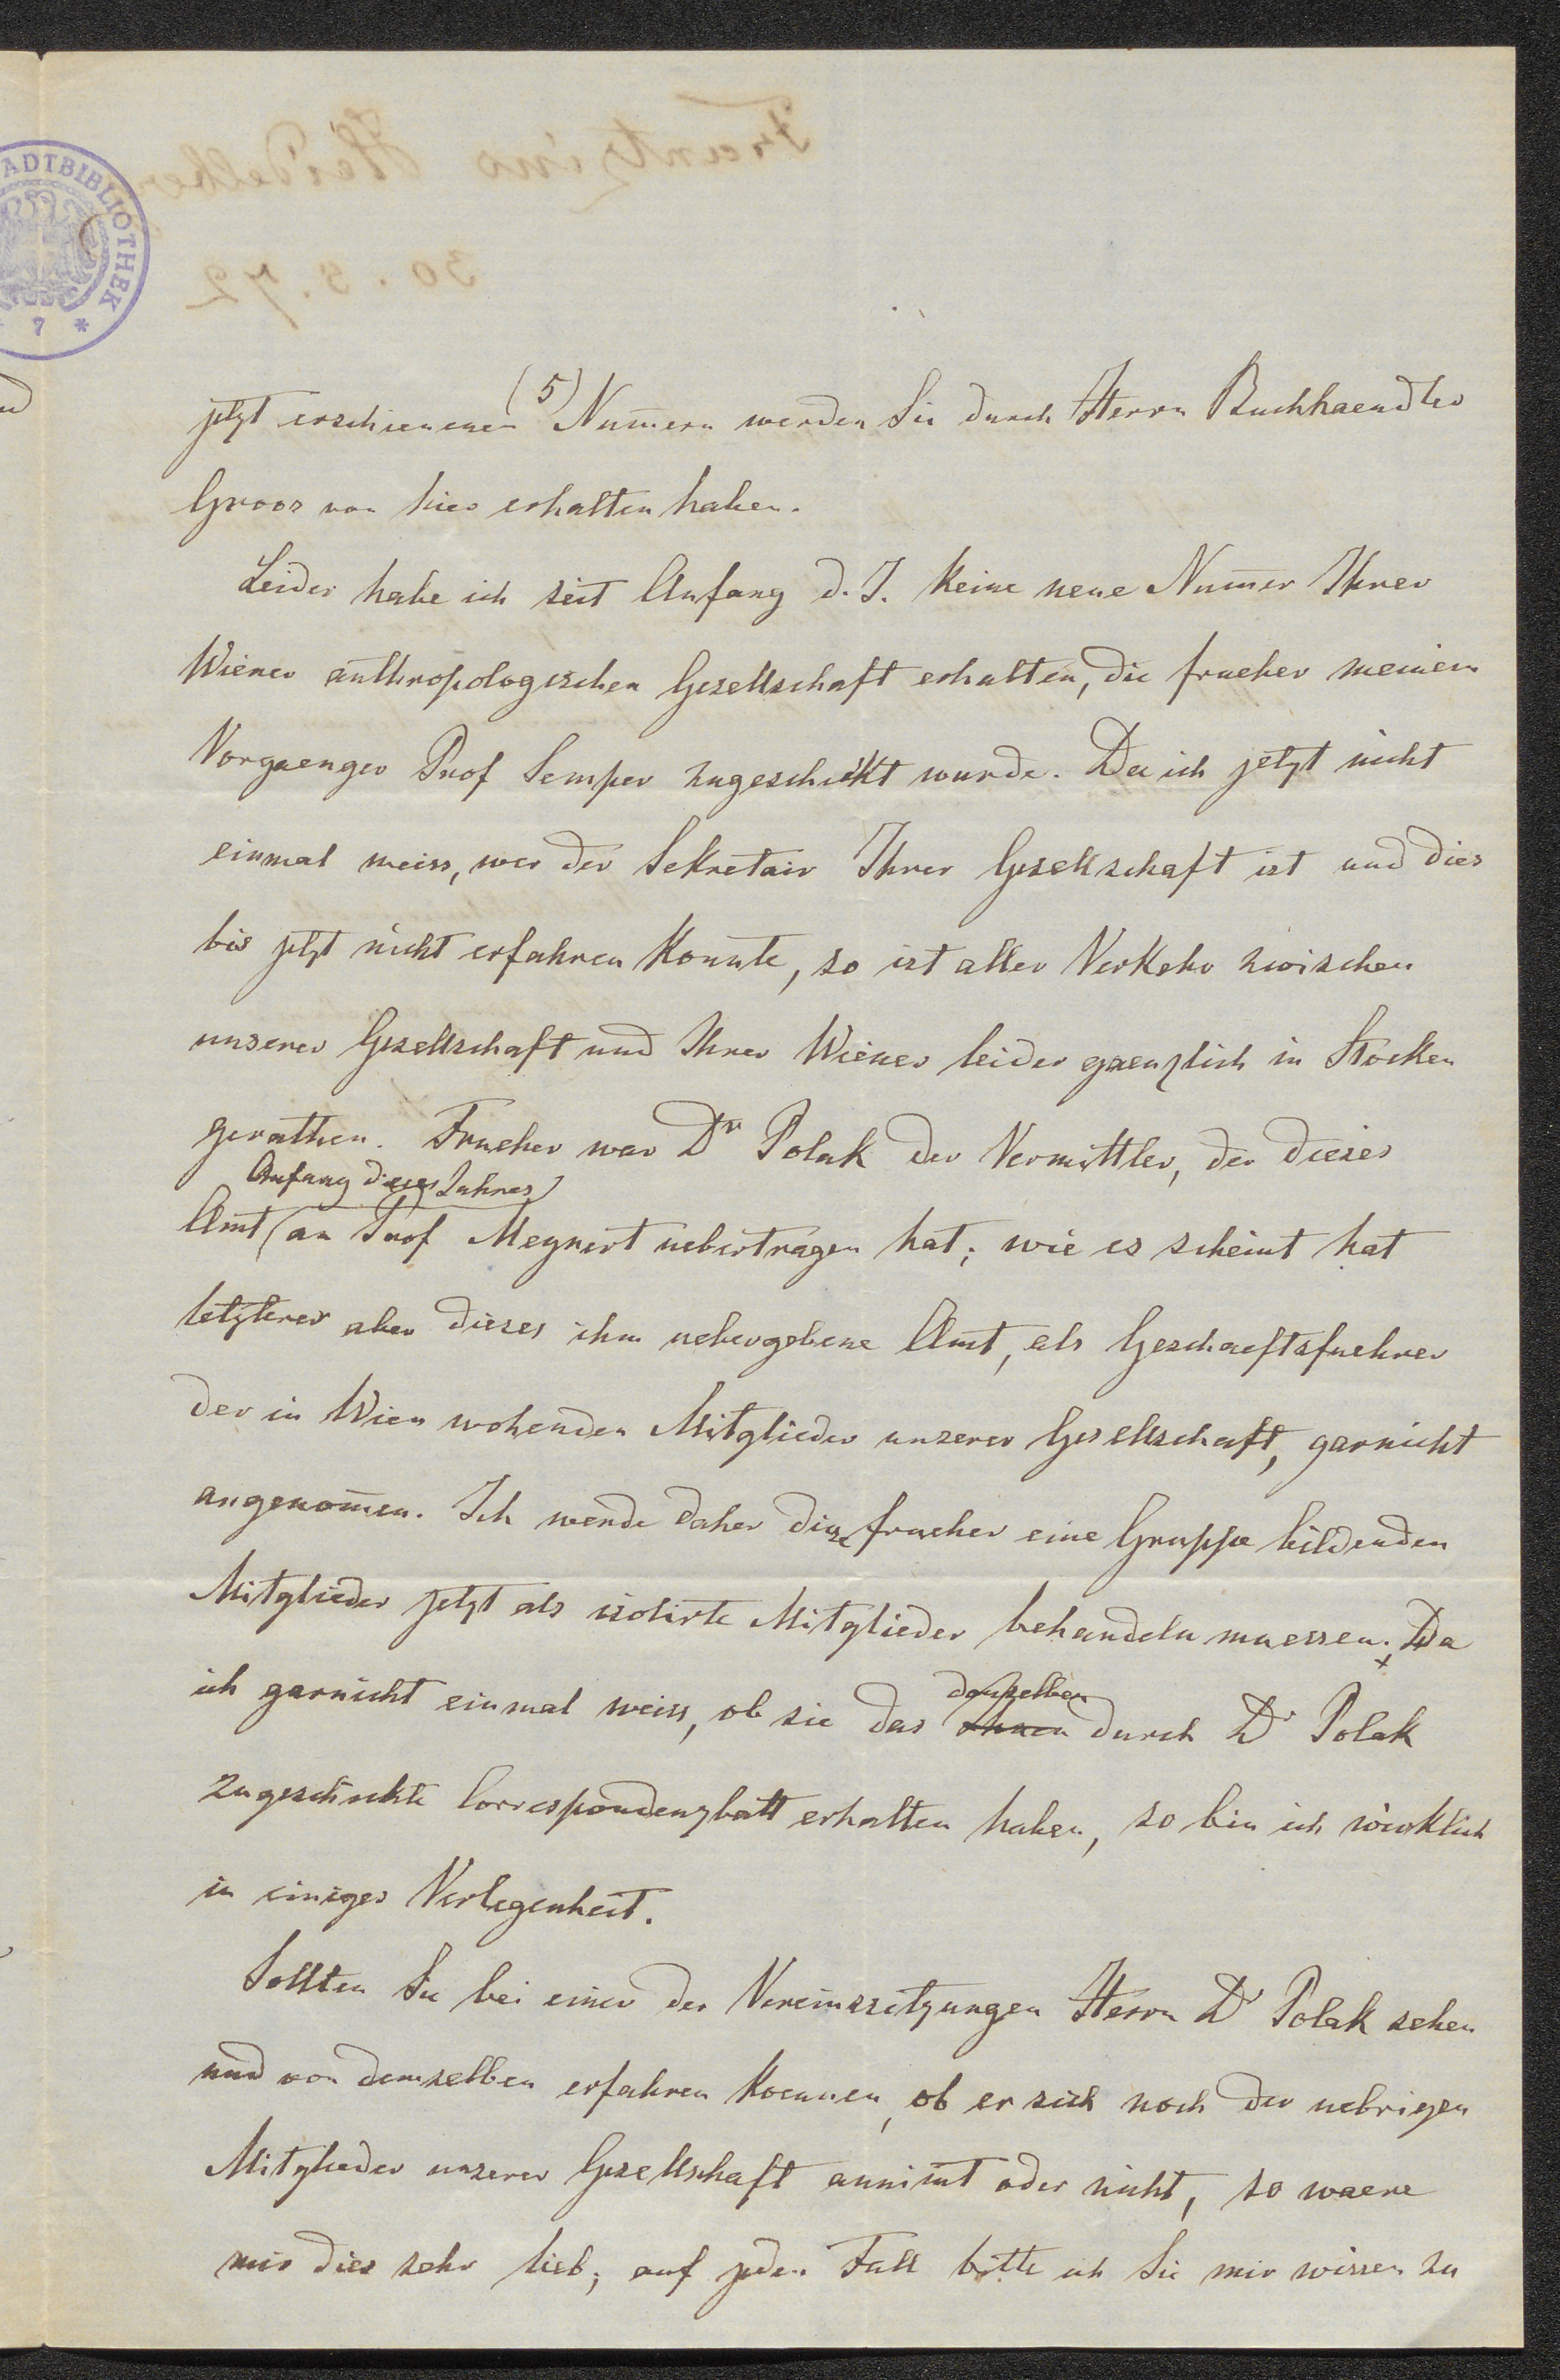 ADTBIBLIOTHEK
* 7 *
Frantzius Heidelber
30. 5. 72
(5)
jetzt erschienenen Num̄ern werden Sie durch Herrn Buchhaendler
Groos von hier erhalten haben.
Leider habe ich seit Anfang d. J. keine neue Num̄er Ihrer
Wiener anthropologischen Gesellschaft erhalten, die frueher meinem
Vorgaenger Prof Semper zugeschikt wurde. Da ich jetzt nicht
einmal weiss, wer der Sekretair Ihrer Gesellschaft ist und dies
bis jetzt nicht erfahren konnte, so ist aller Verkehr zwischen
unserer Gesellschaft und Ihrer Wiener leider gaenzlich in Stocken
gerathen. Frueher war Dr Polak der Vermittler, der dieses
Anfang dieses Jahres
Amt an Prof Meynert uebertragen hat; wie es scheint hat
letzterer aber dieses ihm uebergebene Amt, als Geschaeftsfuehrer
der in Wien wohenden Mitglieder unserer Gesellschaft, garnicht
angenom̄en. Ich werde daher diese frueher eine Gruppe bildenden
Mitglieder jetzt als isolirte Mitglieder behandeln muessen; Da
denselben
ich garnicht einmal weiss, ob sie das Ihnen durch Dr Polak
zugeschickte Correspondenzblatt erhalten haben, so bin ich wirklich
in einiger Verlegenheit.
Sollten Sie bei einer der Vereinssitzungen Herrn Dr Polak sehen
und von demselben erfahren koennen, ob er sich noch der uebrigen
Mitglieder unserer Gesellschaft annim̄t oder nicht, so waere
mir dies sehr lieb; auf jeden Fall bitte ich Sie mir wissen zu